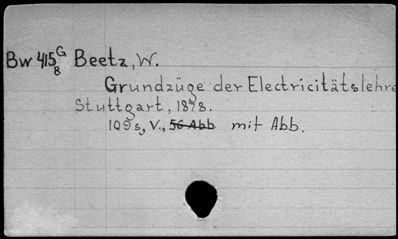 Bw 415 G 8 Beetz, W.
Grundzüge der Electricitätslehre
Stuttgart, 1878.
109 s, V., 56 Abb mit Abb.